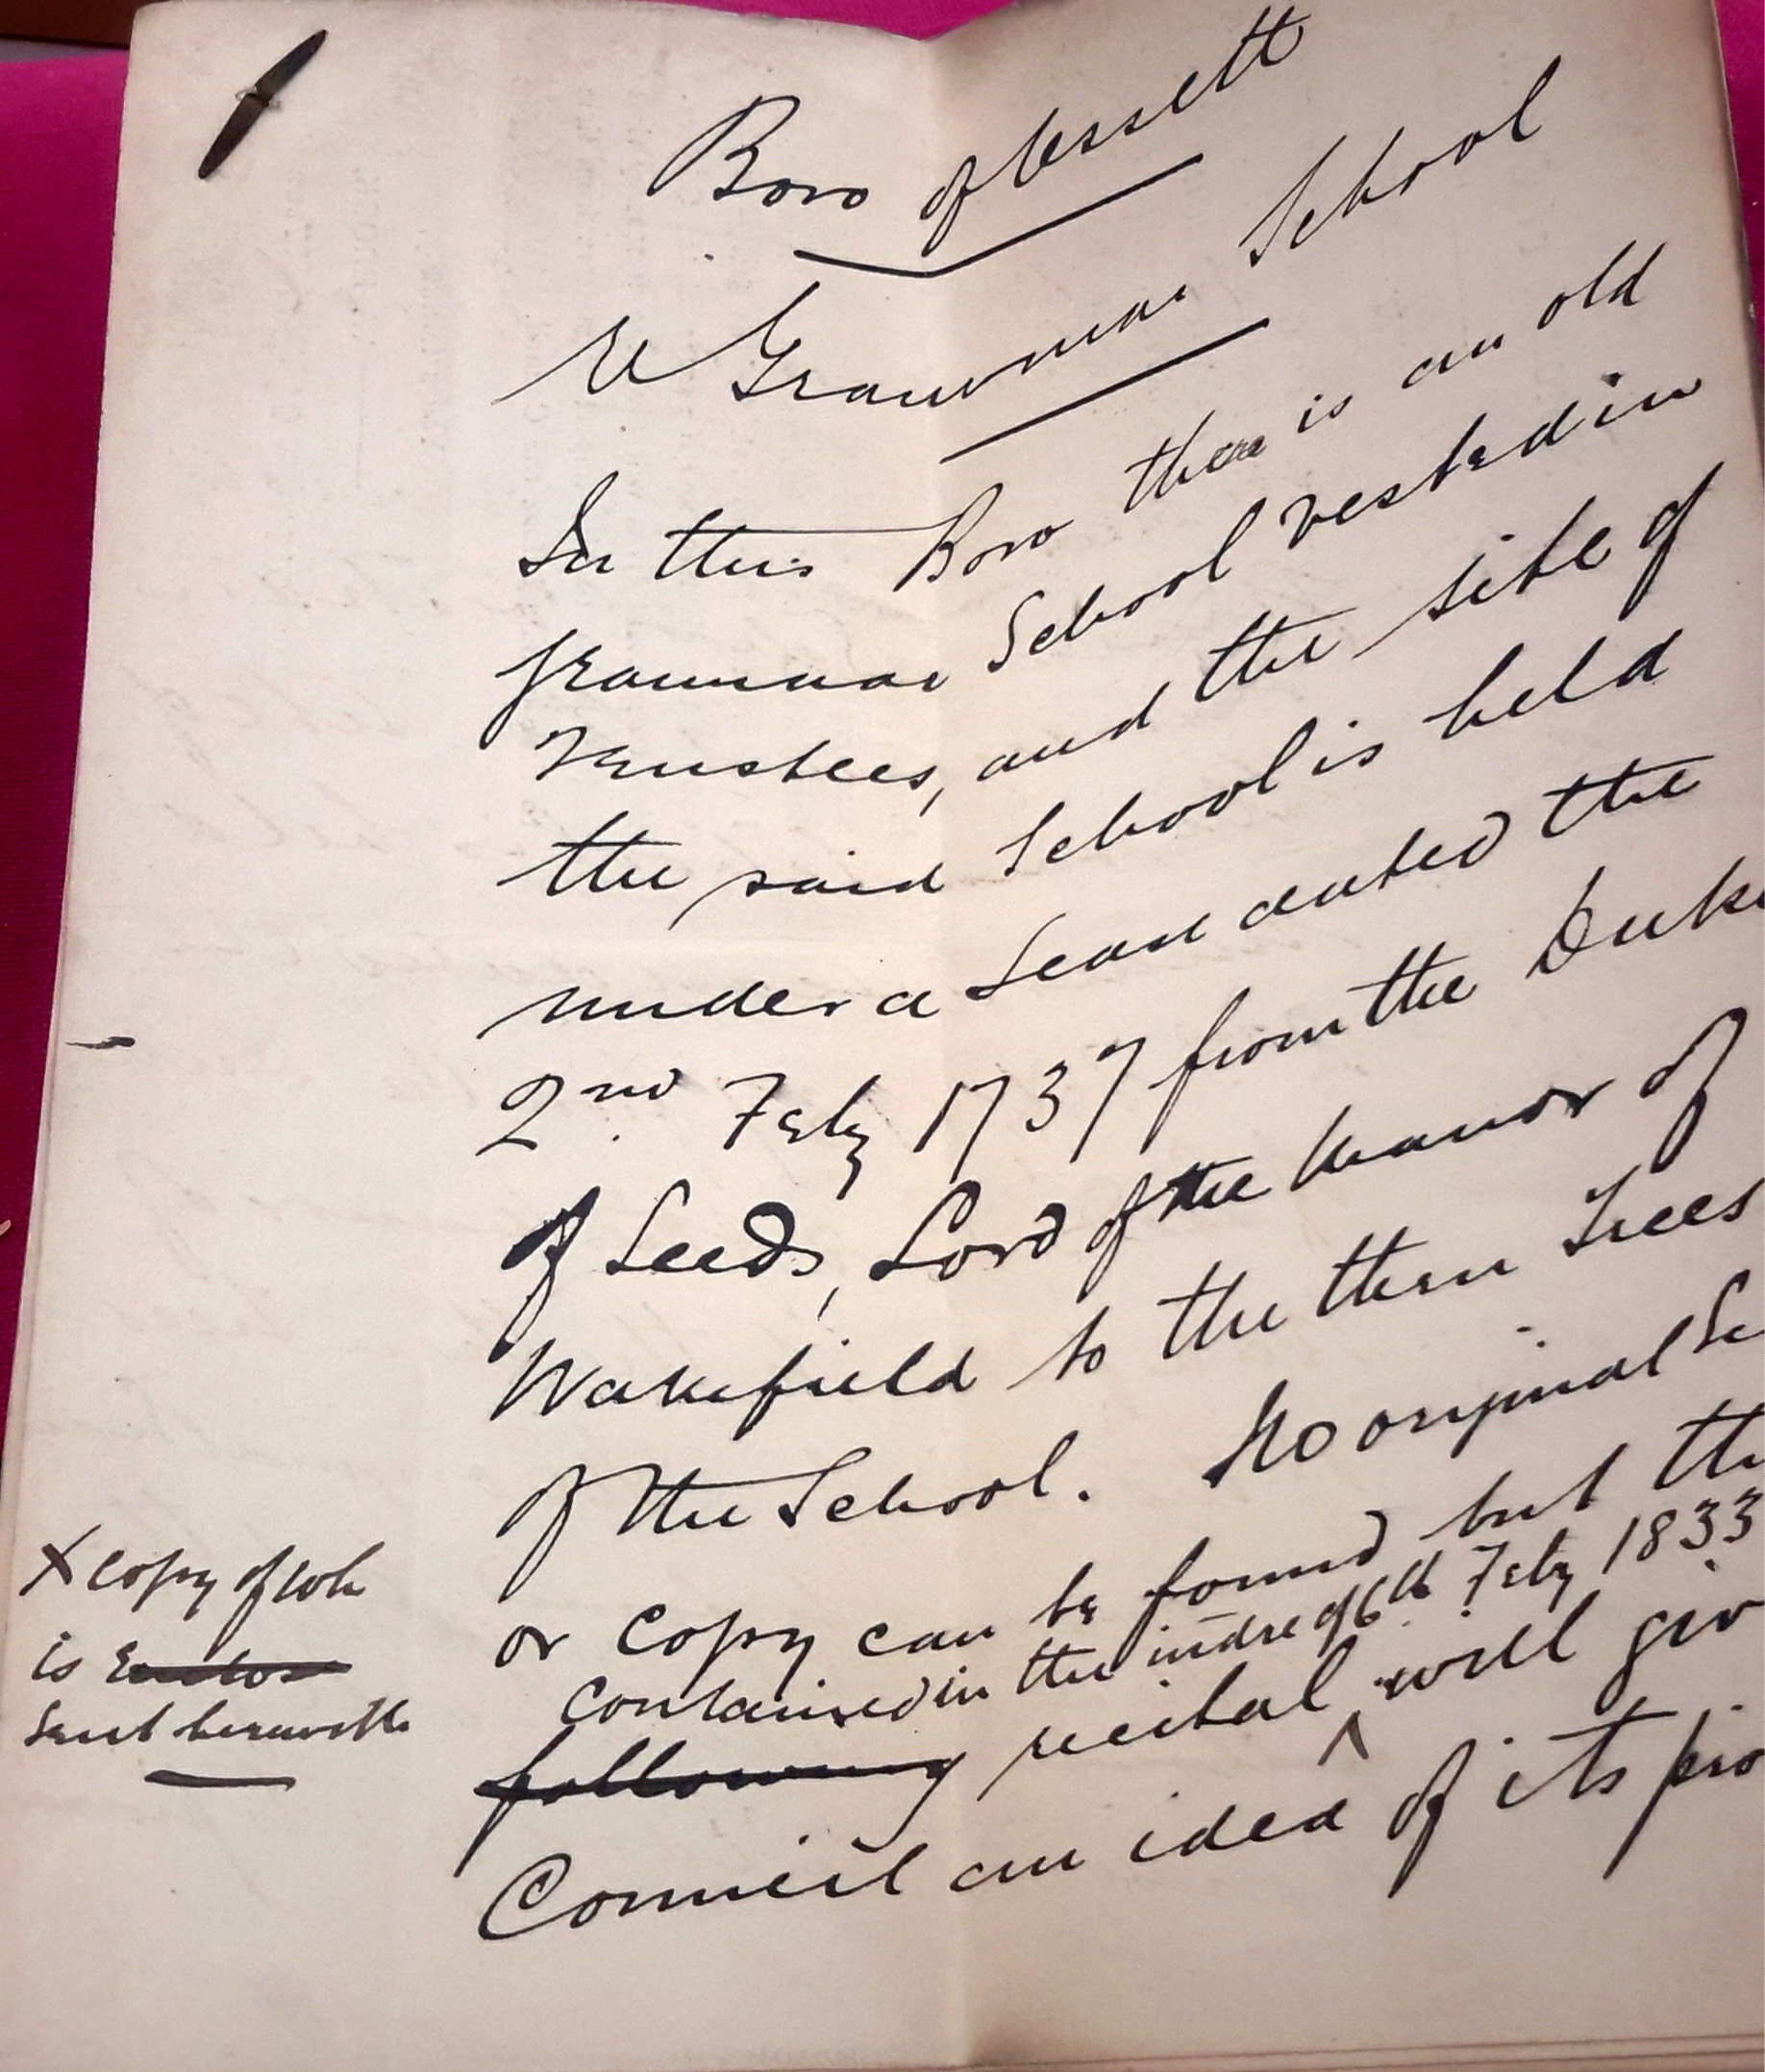 Boro of Ossett
re Grammar School
In this Boro there is an old
Grammar School vested in
Trustees, and the site of
the said School is held
under a Lease dated the
2nd Feby 1737 from the Duke
of Leeds, Lord of the Manor of
Wakefield to the then Trees
of the School. No original Le
or Copy can be found but the
contained in the indre of 6th Feby 1833
following recital will giv
Council an idea of its pro
X Copy of wh
is Enclos
sent herewith